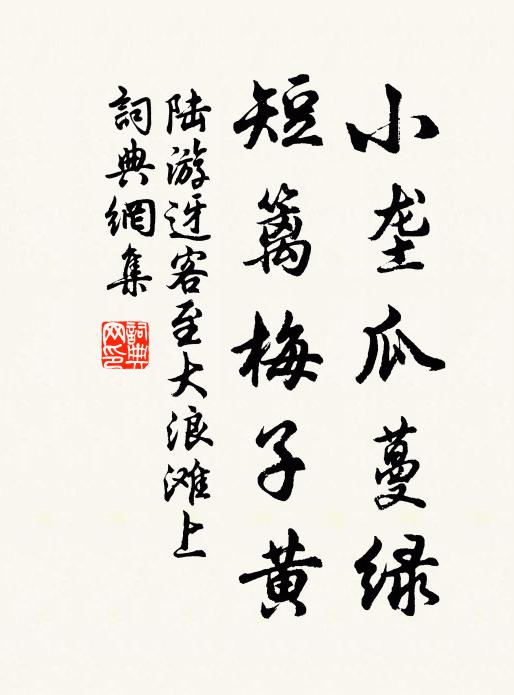 小垄瓜蔓绿
短篱梅子黄
陆游迓客至大浪滩上
詞典網集
詞典网印